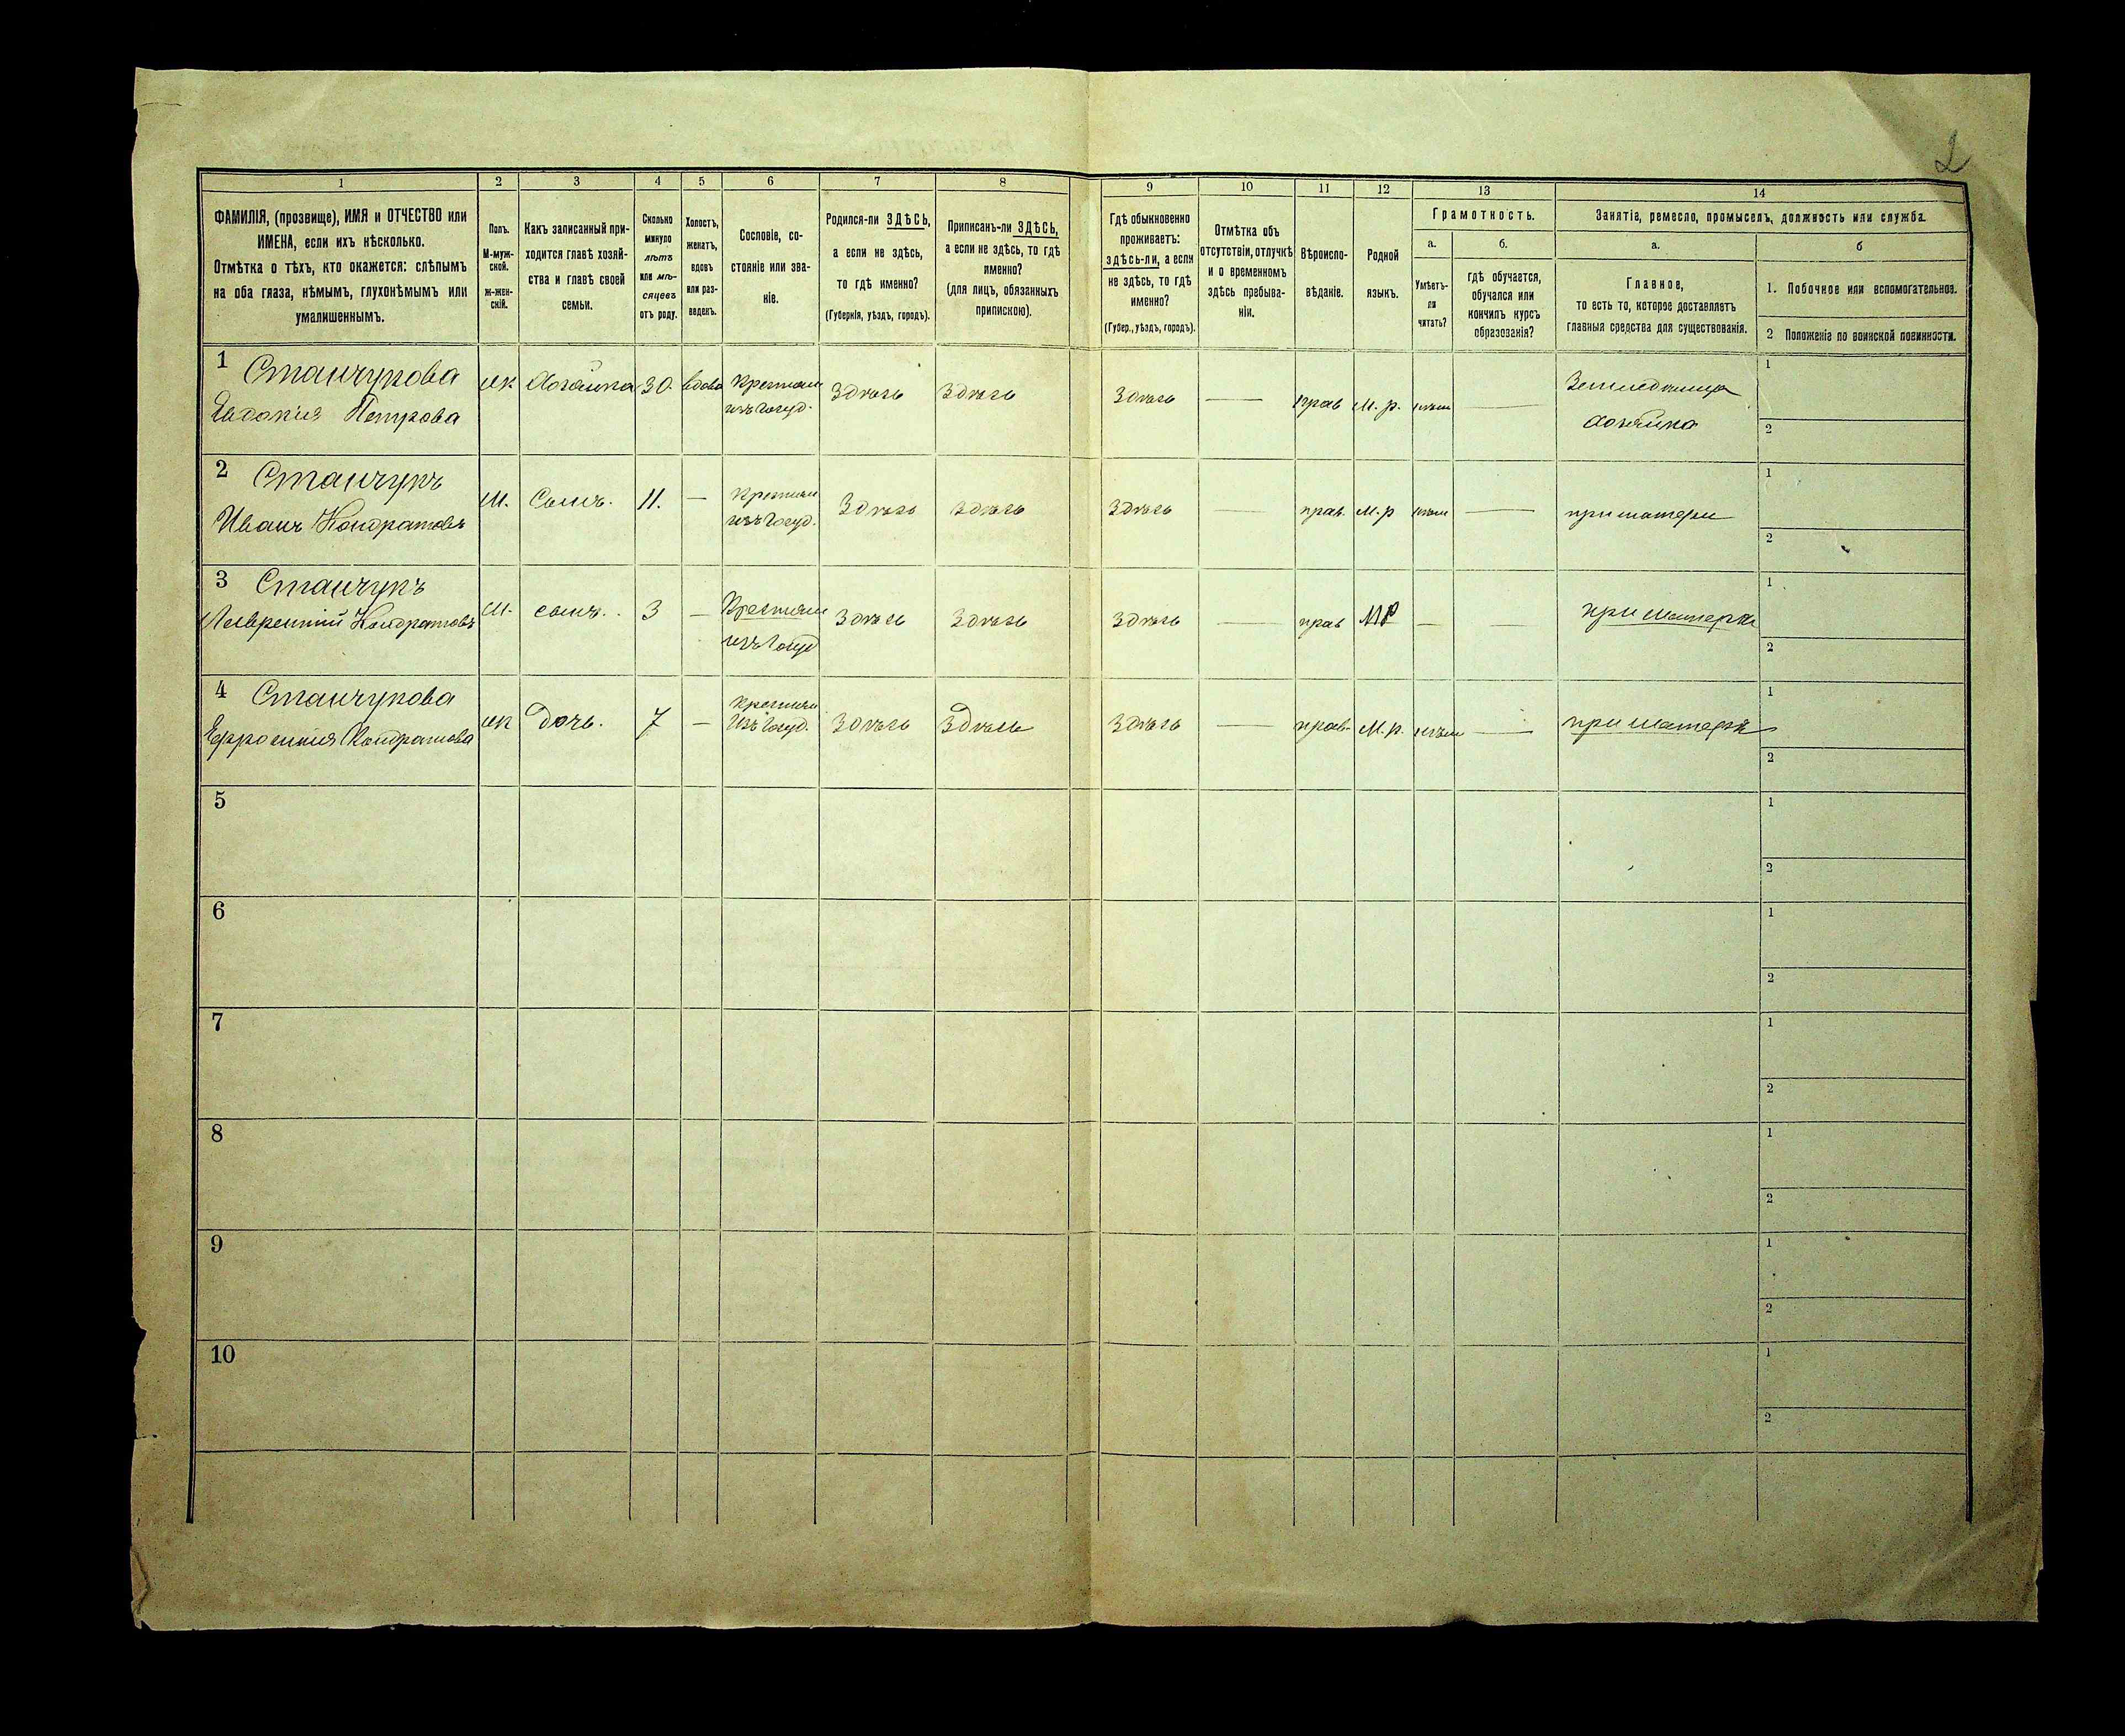 2
1 2 3 4 5 6 7 8 9 10 11 12 13 14
ФАМИЛІЯ, (прозвище), ИМЯ и ОТЧЕСТВО или
ИМЕНА, если ихъ нѣсколько.
Отмѣтка о тѣхъ, кто окажется: слѣпымъ
на оба глаза, нѣмымъ, глухонѣмымъ или
умалишеннымъ.
Полъ.
М-муж-
ской.
ж-жен-
скій.
Какъ записанный при-
ходится главѣ хозяй-
ства и главѣ своей
семьи.
Сколько
минуло
лѣтъ
или мѣ-
сяцевъ
отъ роду.
Холостъ,
женатъ,
вдовъ
или раз-
веденъ.
Сословіе, со-
стояніе или зва-
ніе.
Родился-ли ЗДѢСЬ,
а если не здѣсь,
то гдѣ именно?
(Губернія, уѣздъ, городъ).
Приписанъ-ли ЗДѢСЬ,
а если не здѣсь, то гдѣ
именно?
(для лицъ, обязанныхъ
припискою).
Гдѣ обыкновенно
проживаетъ:
здѣсь-ли, а если
не здѣсь, то гдѣ
именно?
(Губер., уѣздъ, городъ).
Отмѣтка объ
отсутствіи, отлучкѣ
и о временномъ
здѣсь пребыва-
ніи.
Вѣроиспо-
вѣданіе.
Родной
языкъ.
Грамотность.
а.
Умѣетъ-
ли
читать?
б.
гдѣ обучается,
обучался или
кончилъ курсъ
образованія?
Занятіе, ремесло, промыселъ, должность или служба.
а.
Главное,
то есть то, которое доставляетъ
главныя средства для существованія.
б
1. Побочное или вспомогательное.
2 Положеніе по воинской повинности.
1 Станчукова
Евдокия Петрова
ж Хозяйка 30. вдова Крестьян
изъ госуд. Здѣсь Здѣсь Здѣсь — прав М. р. нѣт — Земледѣлица
хозяйка
1
2
2 Станчукъ
Иванъ Кондратовъ
М. Сынъ. 11. — Крестьян
изъ госуд. Здѣсь Здѣсь Здѣсь — прав. М. р нѣт — при матери
1
2
3 Станчукъ
Лаврентий Кондратовъ
М. сынъ. 3 — Крестьян
изъ госуд Здѣсь Здѣсь Здѣсь — прав МР — — при матери
1
2
4 Станчукова
Ефросиния Кондратова
ж дочь. 7 — Крестьян
Изъ госуд. Здѣсь Здѣсь Здѣсь — прав. М. р. нѣт — при матери
1
2
5
1
2
6
1
2
7
1
2
8
1
2
9
1
2
10
1
2